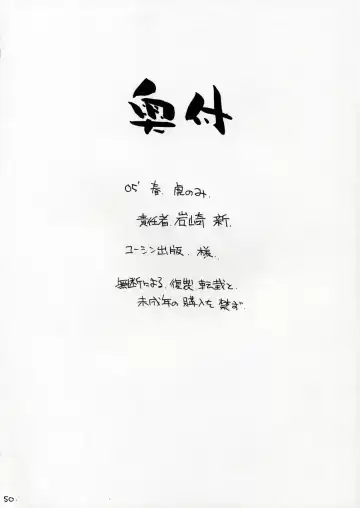 奥付
05' 春. 虎のみ.
責任者. 岩崎 新.
ユーシン出版. 様.
無断による. 複製. 転載と.
未成年の購入を禁ず.
50.